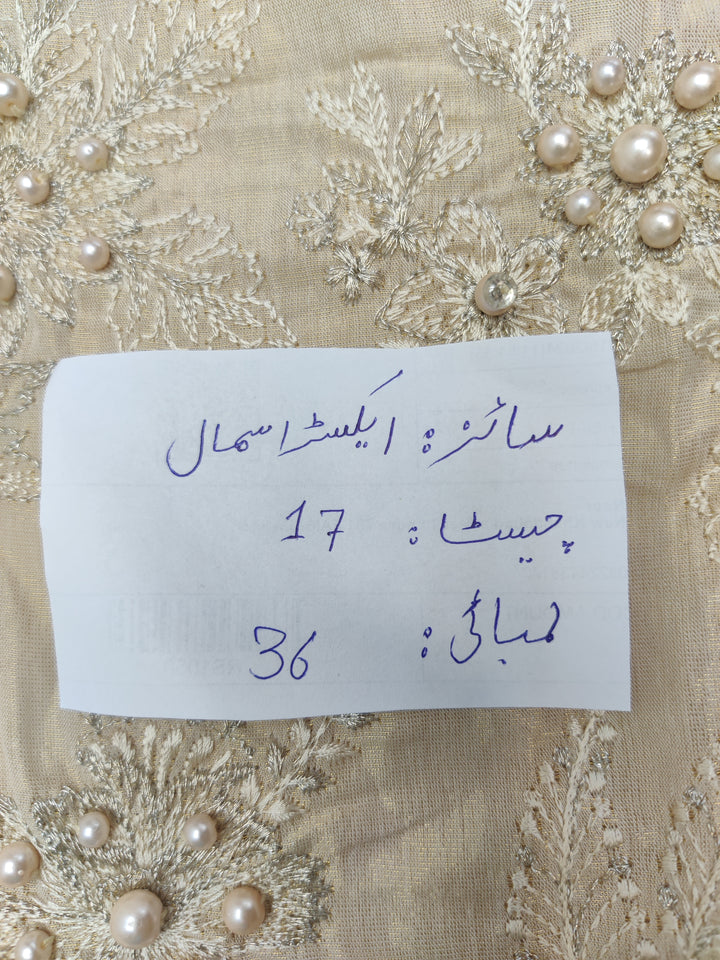 سائز: ایکسٹرا سمال
چیسٹ: 17
لمبائی: 36